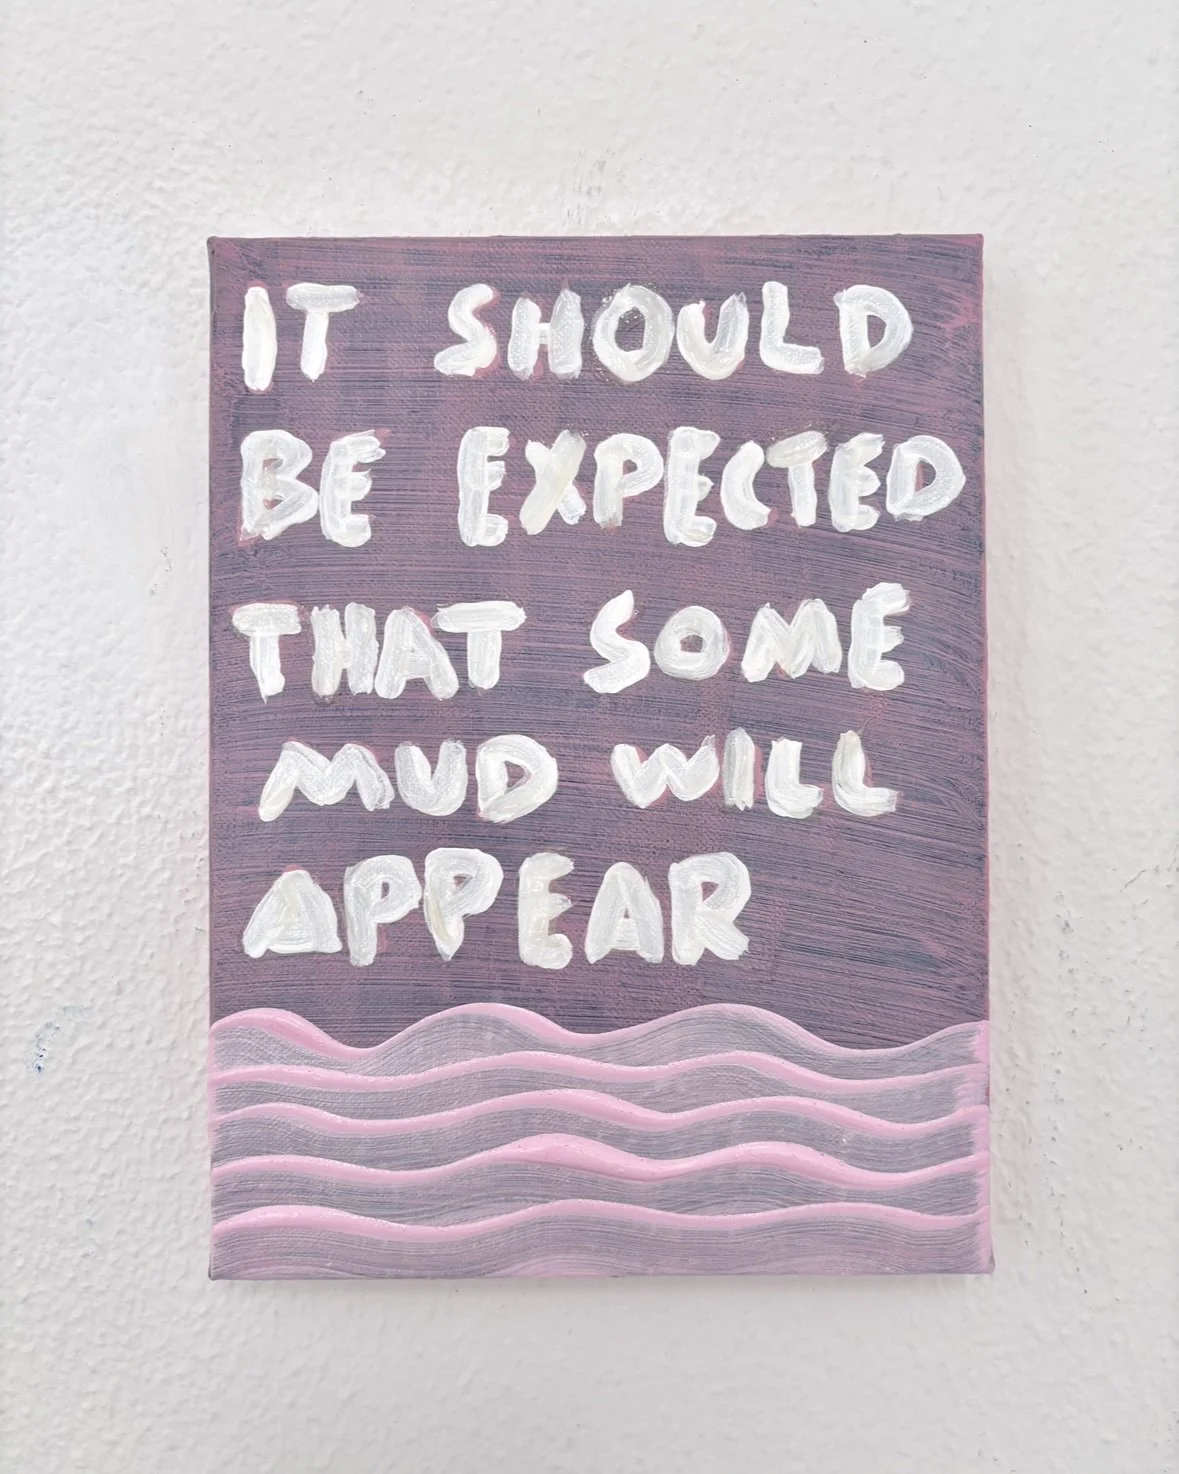 IT SHOULD
BE EXPECTED
THAT SOME
MUD WILL
APPEAR